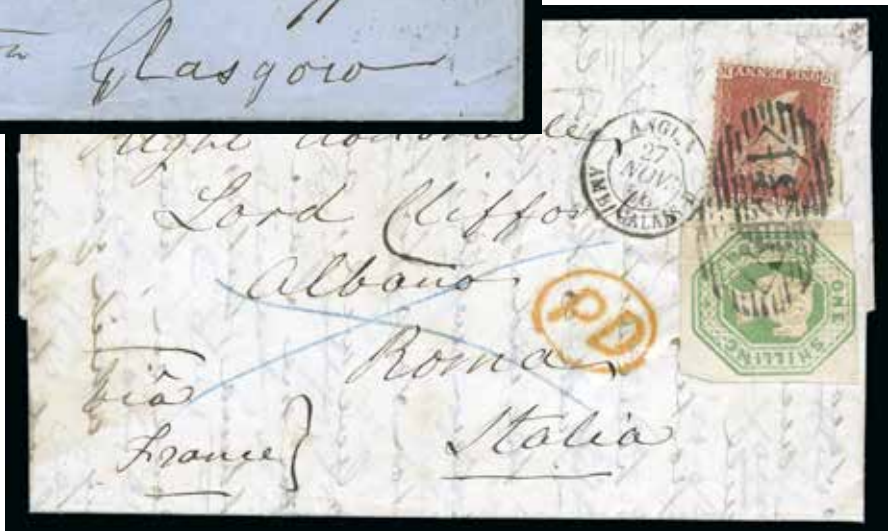 Glasgow
Right Honorable
Lord Clifford
Albano
Roma
Italia
via
France
ANGL.
27
NOV
AMB. CALAIS
PD
ONE PENNY
ONE SHILLING